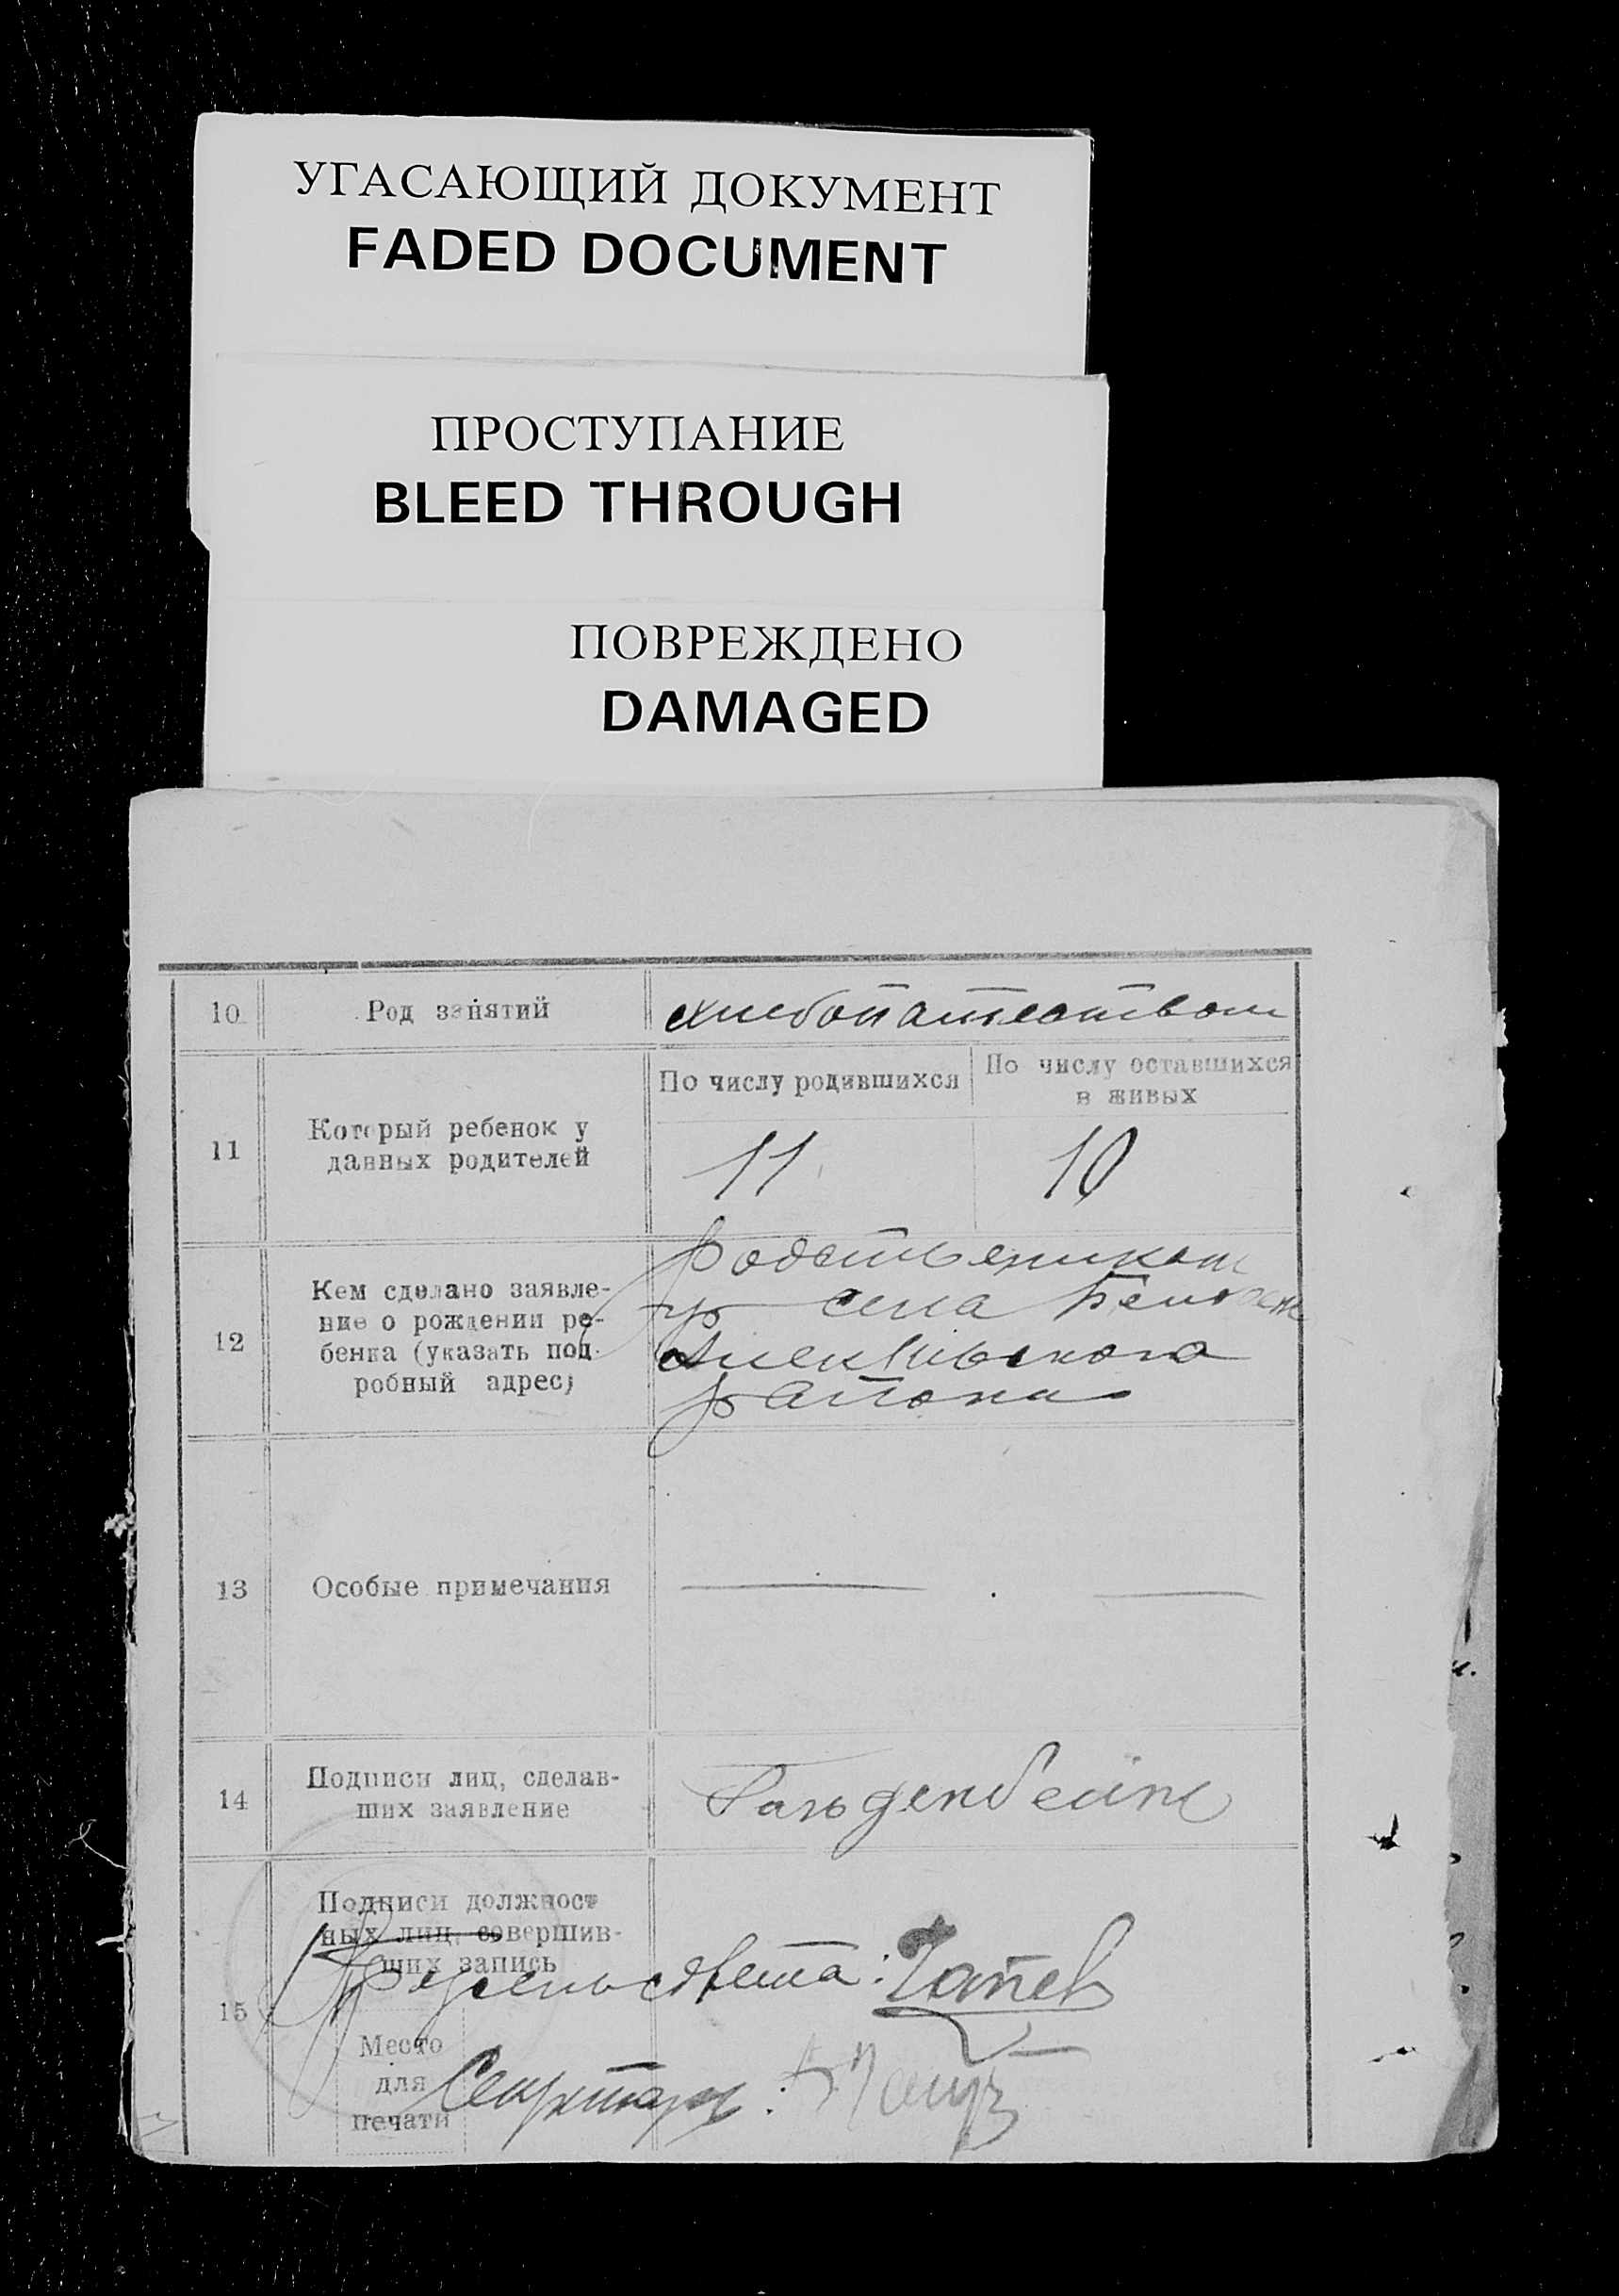 УГАСАЮЩИЙ ДОКУМЕНТ
FADED DOCUMENT
ПРОСТУПАНИЕ
BLEED THROUGH
ПОВРЕЖДЕНО
DAMAGED
10 Род занятий хлебопашеством
11 Который ребенок у
данных родителей
По числу родившихся
По числу оставшихся
в живых
11 10
12 Кем сделано заявле-
ние о рождении ре-
бенка (указать под-
робный адрес)
родствеником
гр села
района
13 Особые примечания
14 Подписи лиц, сделав-
ших заявление
15 Подписи должност
ных лиц, совершив-
ших запись
Место
для
печати
Секретарь: